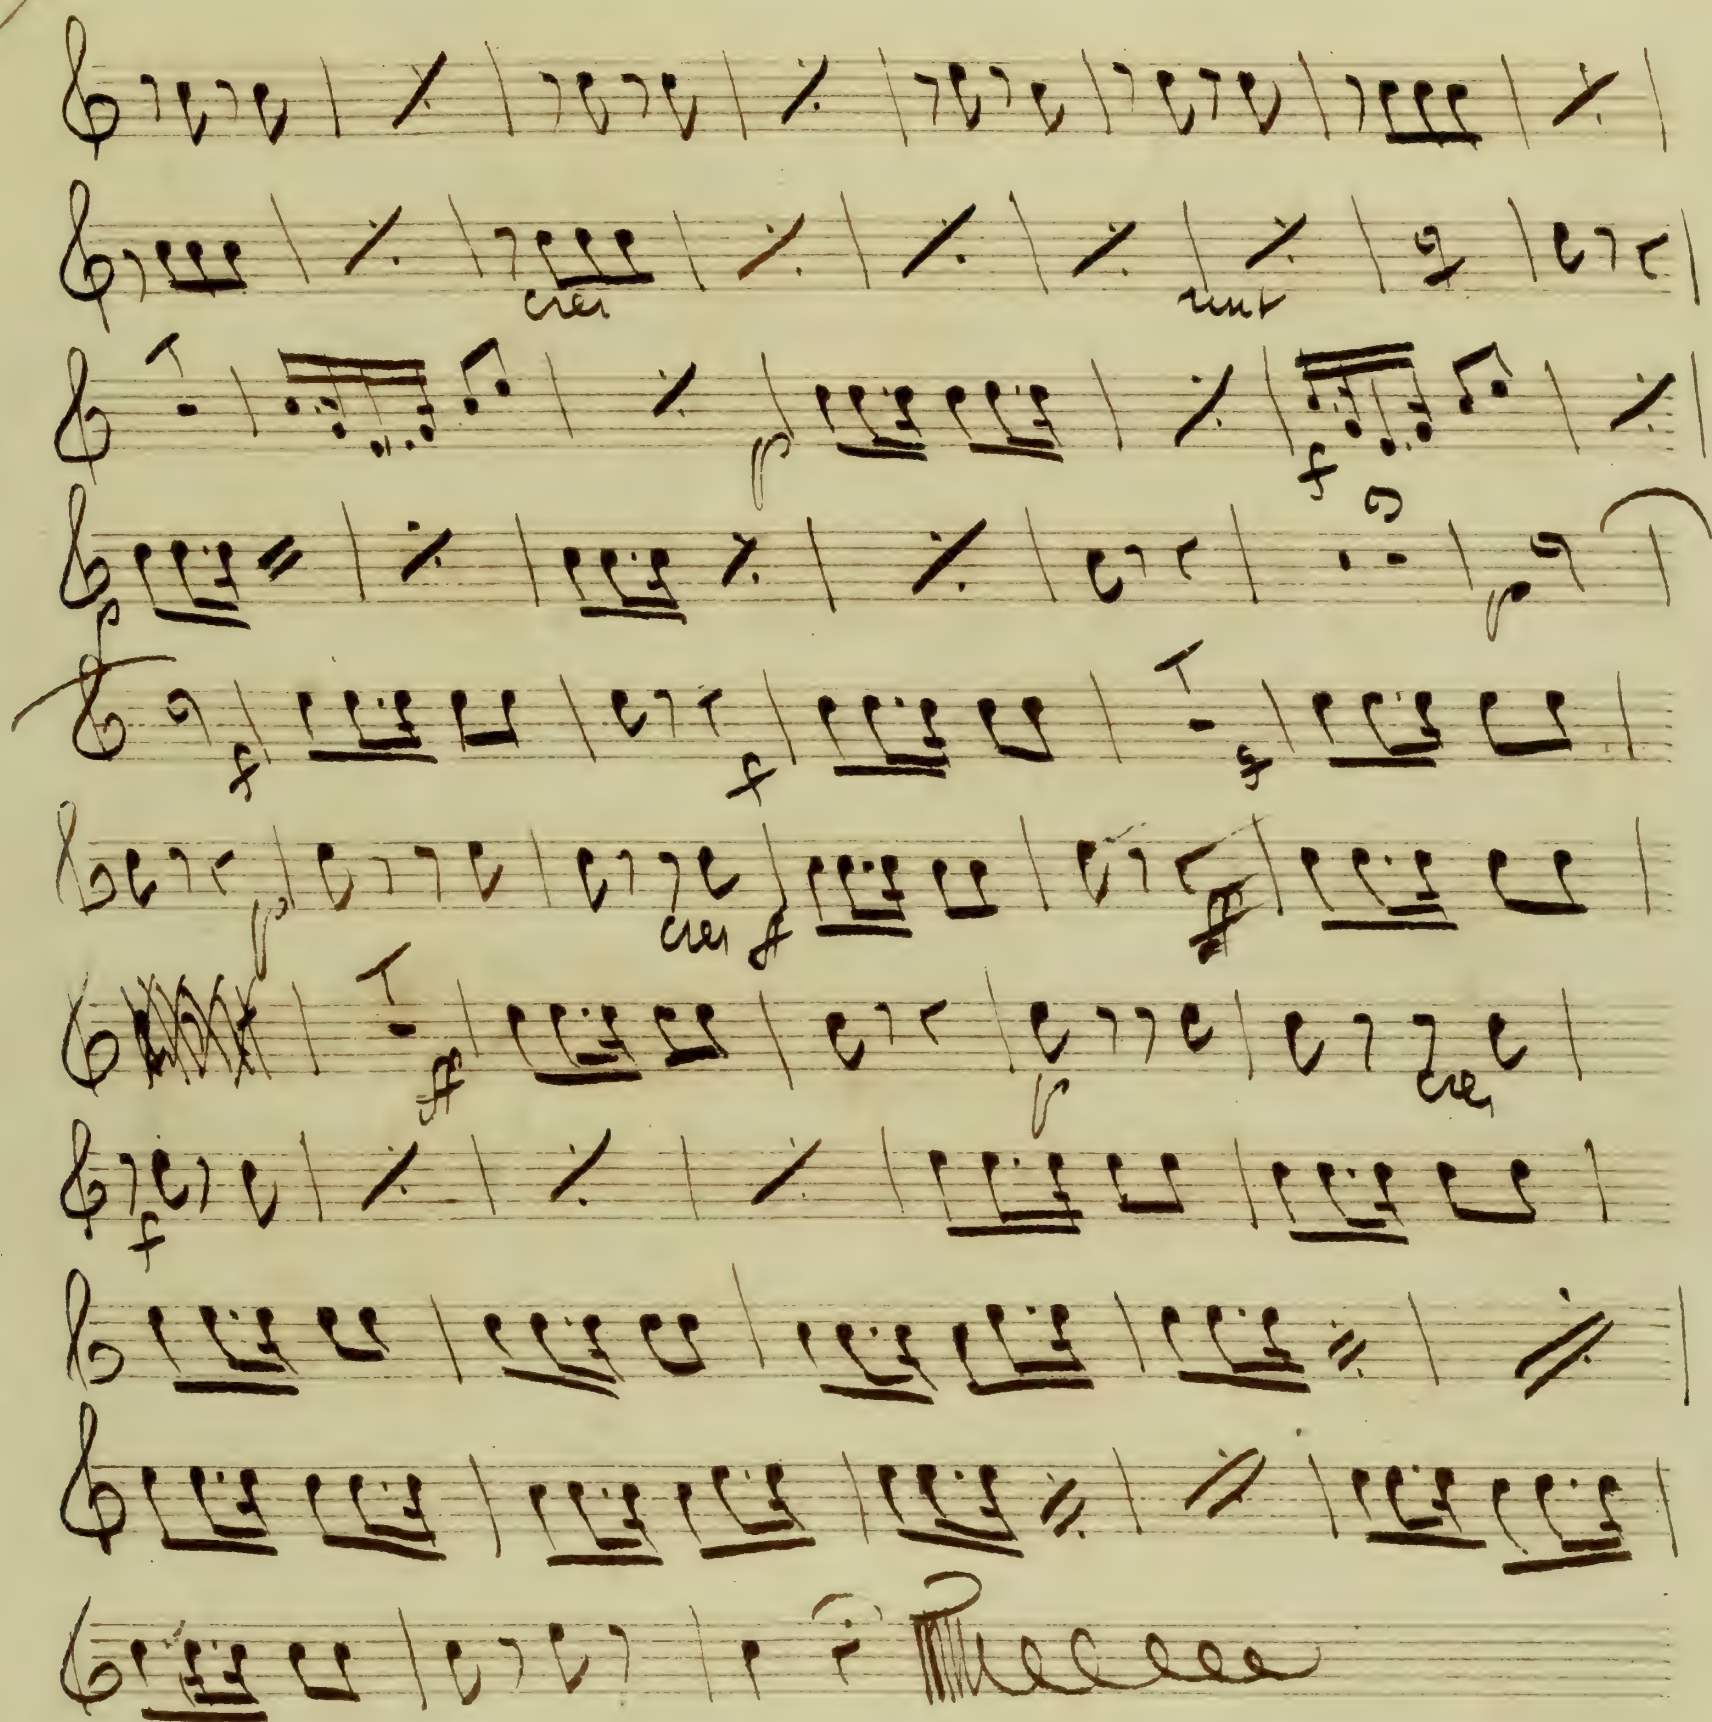 cres
rinf
p
f
p
p
f
f
f
p
cres ff
ff
ff
p
cres
f